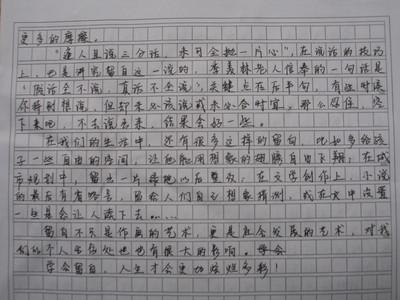 更多的摩擦。
"逢人且说三分话，未可全抛一片心"，在说话的技巧
上，也是讲究留白这一说的，季羡林先人信奉的一句话是
"假话全不说，真话不全说"，关键点在后半句，有些时候
你特别想说，但却未必该说或未必合时宜，那么停住，咽
下来吧，不去说出来，结果会好一些。
在我们的生活中，还有很多这样的留白，比如多给孩
子一些自由的空间，让他能用想象的翅膀自由飞翔；在城
市规划中，留出一片绿地以后整改；在文学创作上，小说
的最后有省略号，留给人们自己想象猜测，我在文中设置
一些是会让人读下去……
留白不只是作画的艺术，更是社会发展的艺术，对我
们的个人生活处也也有很大的影响。
学会留白，人生才会更加炫烂多彩！